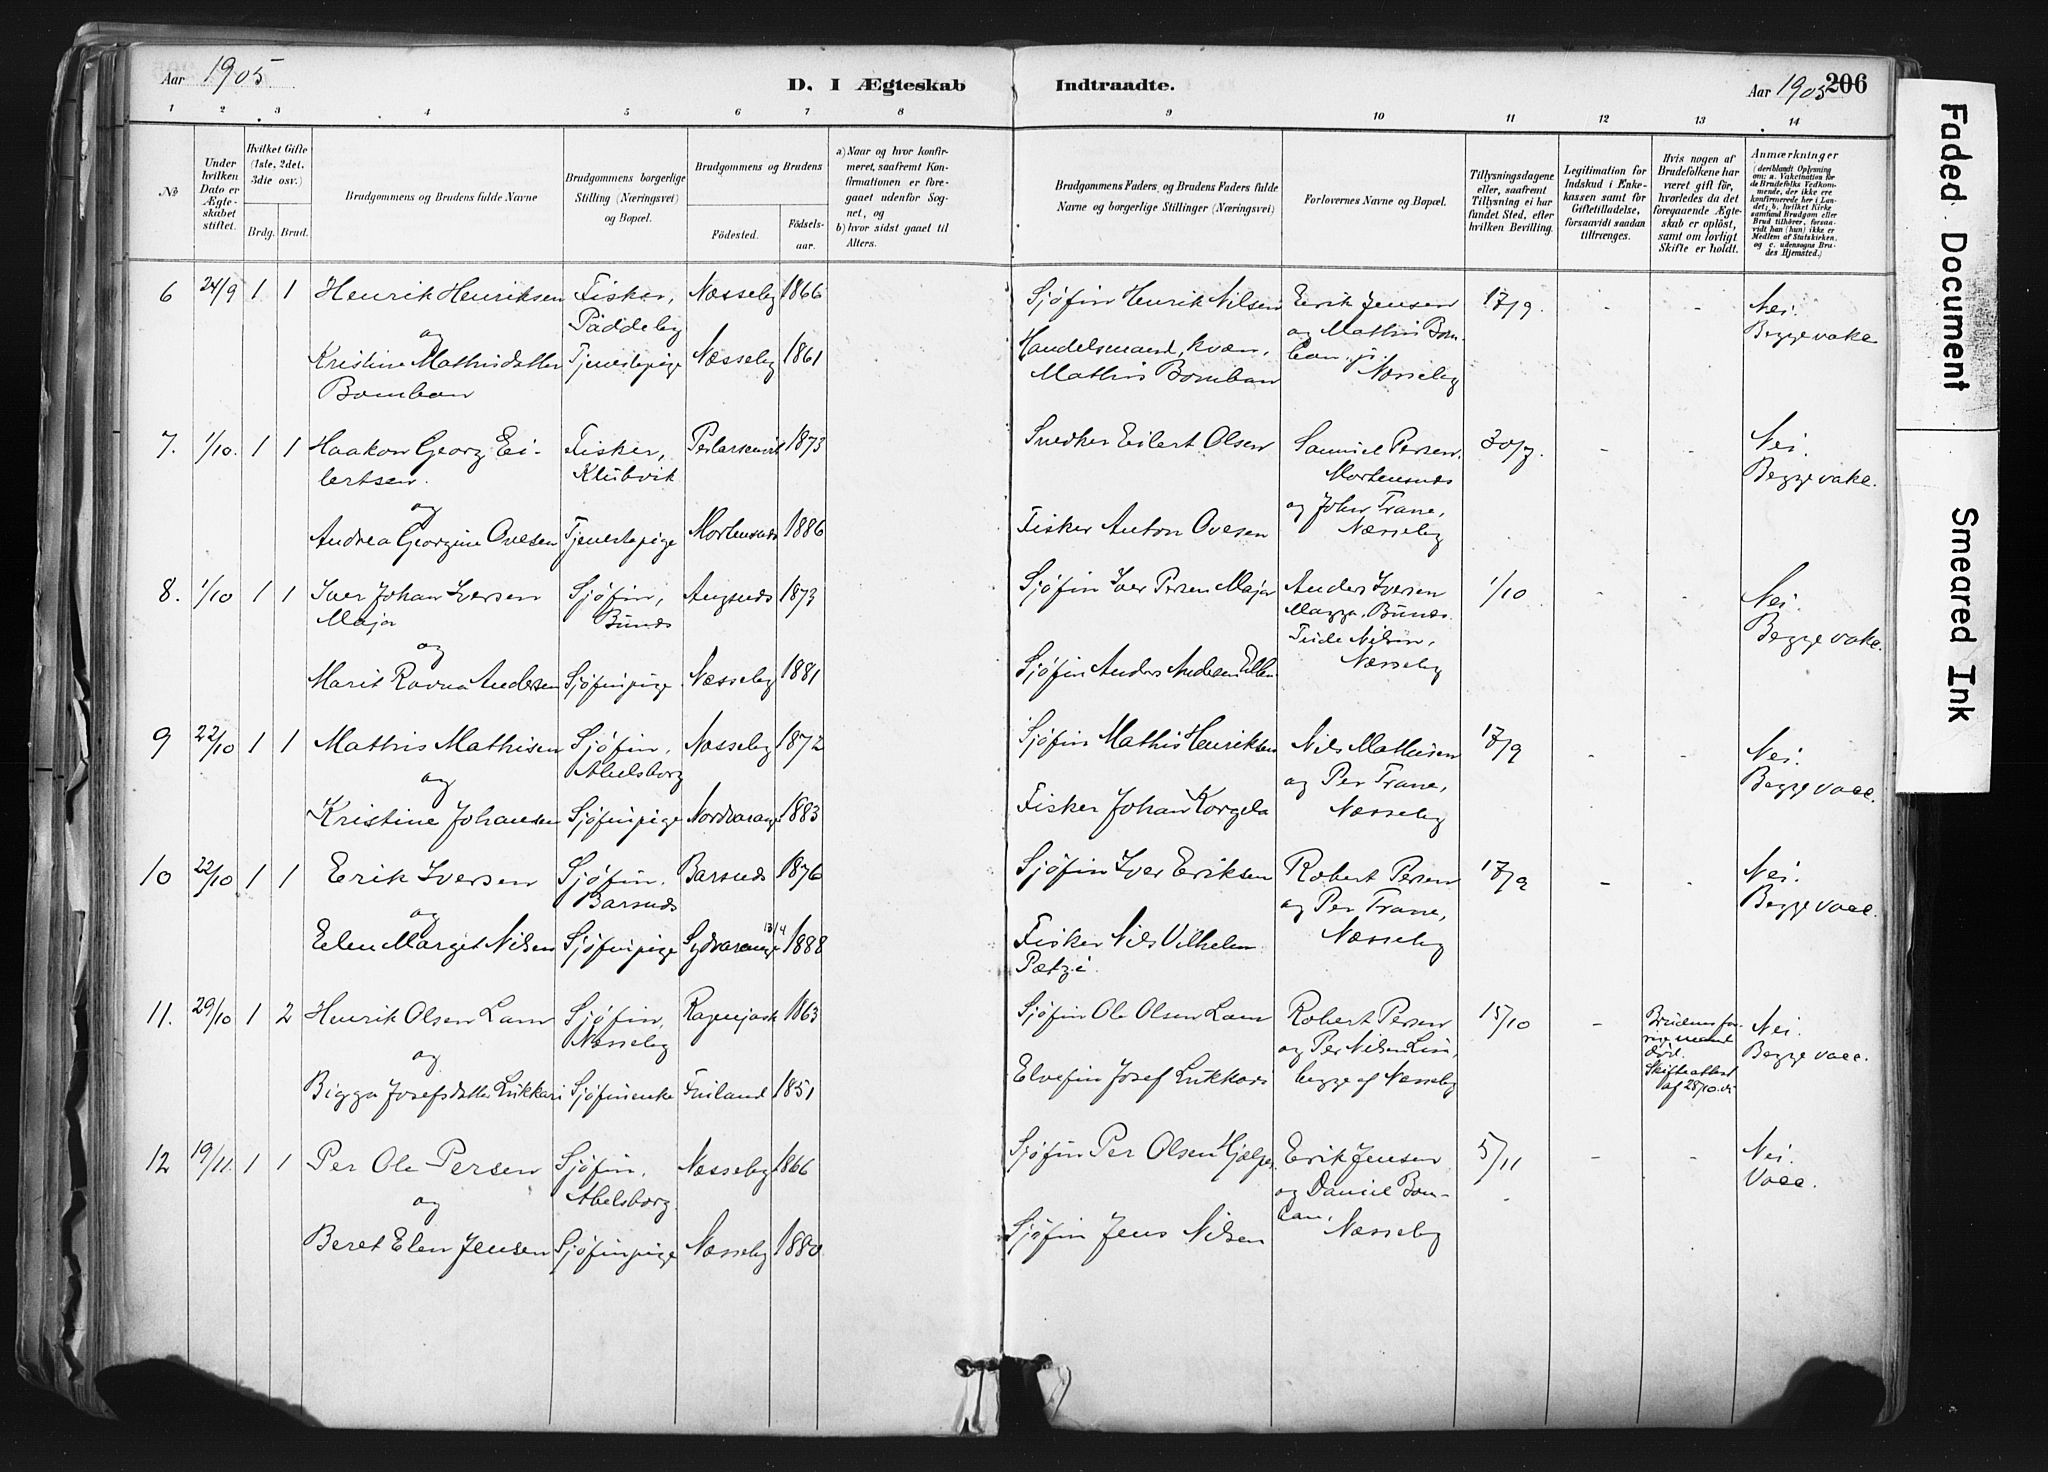 Aar 1905
D. I Ægteskab Indtraadte.
Aar 1905 206
1 2 3 4 5 6 7 8 9 10 11 12 13 14
No
Under hvilken Dato er Ægteskabet stiftet.
Hvilket Gifte (1ste, 2det, 3die osv.)
Brdg. Brud.
Brudgommens og Brudens fulde Navne
Brudgommens borgerlige Stilling (Næringsvei) og Bopæl.
Brudgommens og Brudens
Fødested.
Fødselsaar.
a) Naar og hvor konfirmeret, saafremt Konfirmationen er foregaaet udenfor Sognet, og
b) hvor sidst gaaet til Alters.
Brudgommens Faders og Brudens Faders fulde Navne og borgerlige Stillinger (Næringsvei)
Forlovernes Navne og Bopæl.
Tillysningsdagene eller, saafremt Tillysning ei har fundet Sted, efter hvilken Bevilling.
Legitimation for Indskud i Enkekassen samt for Giftetilladelse, forsaavidt saadan tiltrænges.
Hvis nogen af Brudefolkene har været gift før, hvorledes da det foregaaende Ægteskab er opløst, samt om lovligt Skifte er holdt.
Anmærkninger
(deriblandt Oplysning om: a. Vakcination for de Brudefolks Vedkommende, der ikke ere konfirmerede her i Landet; b. hvilket Kirkesamfund Brudgom eller Brud tilhører, forsaavidt han (hun) ikke er Medlem af Statskirken, og c. udensogns Brudes Hjemsted.)
6 24/9 1 1 Henrik Henriksen Fisker, Næsseby 1866 Sjøfin Henrik Nilsen Erik Jensen 17/9. - - Nei.
og Paddeby Handelsmand, kvæn, og Mathis Bom- Begge vake
Kristine Mathisdatter Tjenestepige Næsseby 1861 Mathis Bomban ban. Næsseby
Bomban
7. 1/10. 1 1 Haakon Georg Ei- Fisker, 1873 Snedker Eilert Olsen Samuel Persen, - - Nei.
lertsen. Klubvik Mortensnæs Begge vake.
og og John Trane,
Andrea Georgine Ovesen Tjenestepige Mortensnæs 1886 Fisker Anton Ovesen Næsseby
8. 1/10 1 1 Iver Johan Iversen Sjøfin, Angsnæs 1873 Sjøfin Iver Persen Major Anders Iversen 1/10 - - Nei.
Major Bunæs Magga, Bunæs. Begge vake.
og Nilsen,
Marit Ravna Andersen Sjøfinpige Næsseby 1881 Sjøfin Anders Andersen Næsseby
9 22/10 1 1 Mathis Mathisen Sjøfin, Næsseby 1872 Sjøfin Mathis Henriksen Nils Mathisen 17/9 - - Nei.
og Abelsborg og Per Trane, Begge vacc.
Kristine Johansen Sjøfinpige Nordvarang 1883 Fisker Johan Korgela Næsseby
10 22/10 1 1 Erik Iversen Sjøfin. Barsnæs 1876 Sjøfin Iver Eriksen Robert Persen 17/9 - - Nei.
og Barsnæs og Per Trane, Begge vacc.
Elen Margit Nilsen Sjøfinpige Sydvarange 13/4 1888 Fisker Nils Vilhelm Næsseby
11. 29/10 1 2 Henrik Olsen Lam Sjøfin, 1863 Sjøfin Ole Olsen Lam Robert Persen 15/10 - Brudens for- Nei.
og Næsseby og Per Nilsen rige mand død. Begge vacc.
Bigga Josefsdatter Lukkari Sjøfinenke Finland 1851 Elvefin Josef Lukkari begge af Næsseby Skifteattest af 28/10.05
12 19/11. 1 1 Per Ole Persen Sjøfin, Næsseby 1866 Sjøfin Per Olsen Erik Jensen 5/11 - - Nei.
og Abelsborg. og Daniel Bom- Vacc.
Beret Elen Jensen Sjøfinpige Næsseby 1880 Sjøfin Jens Nilsen ban, Næsseby
Faded Document
Smeared Ink